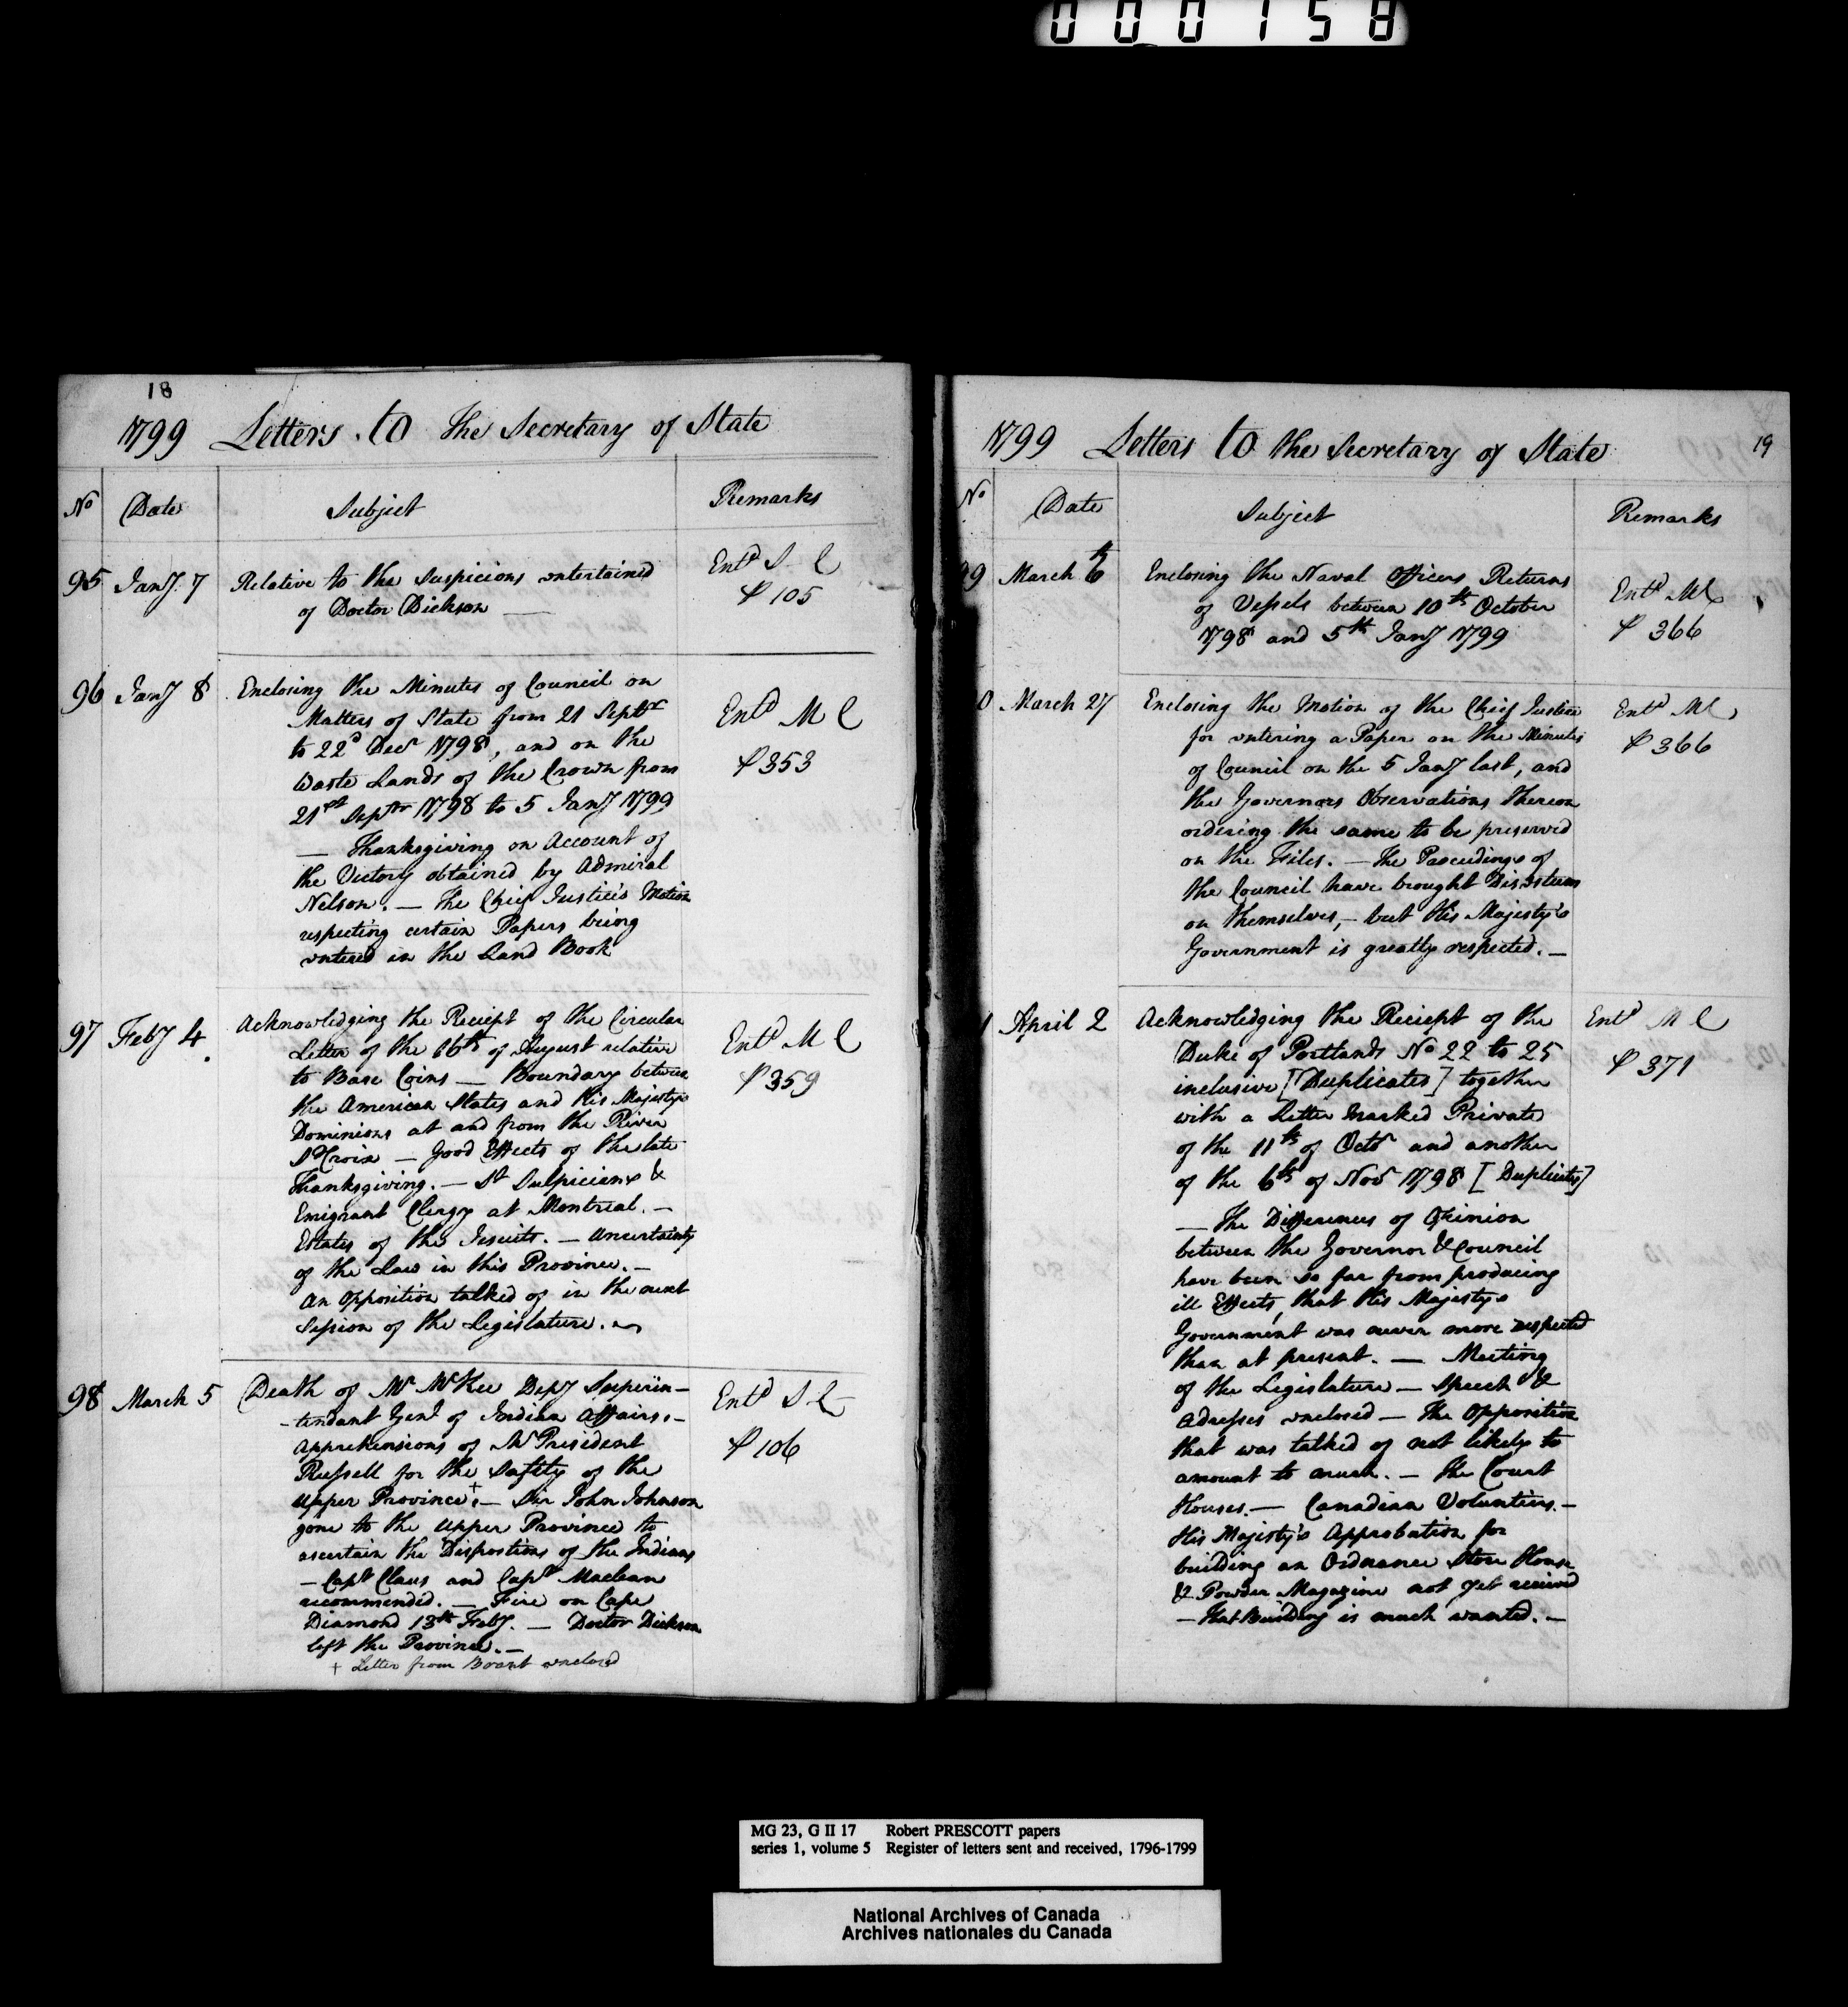 000158
18
1799 Letters to the Secretary of State
No Date Subject Remarks
95 Jany 7 Relative to the Suspicions entertained
of Doctor Dickson —
Entd S L
P 105
96 Jany 8 Enclosing the Minutes of Council on
Matters of State from 21 Septr
to 22d Decr 1798, and on the
Waste Lands of the Crown from
21st Septr 1798 to 5 Jany 1799
— Thanksgiving on Account of
the Victory obtained by Admiral
Nelson. — The Chief Justice's Motion
respecting certain Papers being
entered in the Land Book
Entd M L
P 353
97 Feby 4 Acknowledging the Reciept of the Circular
Letter of the 16th of August relative
to Base Coins — Boundary between
the American States and His Majestys
Dominions at and from the River
St Croix — Good Effects of the late
Thanksgiving. — St Sulpicians &
Emigrant Clergy at Montreal. —
Estates of the Jesuits. — Uncertainty
of the Law in this Province. —
An Opposition talked of in the next
Session of the Legislature.
Entd M L
P 359
98 March 5 Death of Mr McKee Depy Superin-
-tendant Genl of Indian Affairs. —
Apprehensions of Mr President
Russell for the Safety of the
Upper Province + — Sir John Johnson
gone to the Upper Province to
ascertain the Dispositions of the Indians
— Capt Claus and Capt Maclean
recommended. — Fire on Cape
Diamond 13th Feby. — Doctor Dickson
left the Province. —
+ Letter from Brant enclosed
Entd S L
P 106
19
1799 Letters to the Secretary of State
No Date Subject Remarks
9 March 6th Enclosing the Naval Officers Returns
of Vessels between 10th October
1798 and 5th Jany 1799
Entd M L
P 366
0 March 27 Enclosing the Motion of the Chief Justice
for entering a Paper on the Minutes
of Council on the 5 Jany last, and
the Governors Observations thereon
ordering the same to be preserved
on the Files. — The Proceedings of
the Council have brought Disesteem
on themselves, — but His Majesty's
Government is greatly respected. —
Entd M L
P 366
1 April 2 Acknowledging the Reciept of the
Duke of Portlands No 22 to 25
inclusive [Duplicates] together
with a Letter marked Private
of the 11th of Octr and another
of the 6th of Nov 1798 [Duplicates]
— The Differences of Opinion
between the Governor & Council
have been so far from producing
ill Effects, that His Majestys
Government was never more respected
than at present. — Meeting
of the Legislature — Speech &
Adresses enclosed — The Opposition
that was talked of not likely to
amount to much. — The Court
Houses. — Canadian Voluntiers. —
His Majesty's Approbation for
building an Ordnance Store House
& Powder Magazine not yet received
— That Building is much wanted. —
Entd M L
P 371
MG 23, G II 17 Robert PRESCOTT papers
series 1, volume 5 Register of letters sent and received, 1796-1799
National Archives of Canada
Archives nationales du Canada